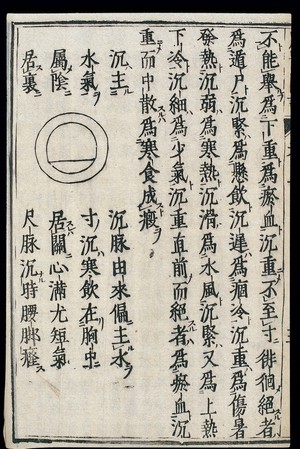 不能擧爲下重爲瘀血沉重不至寸徘徊絕者
爲遁尸沉緊爲懸飲沉遲爲痼冷沉重爲傷暑
發熱沉弱爲寒熱沉滑爲水風沉緊又爲上熱
下冷沉細爲少氣沉重直前而絕者爲瘀血沉
重而中散爲寒食成瘕
沉主
水氣
屬陰
居裏
沉脉由來偏主水
寸沉寒飲在胸中
居關心滿尤短氣
尺脉沉時腰脚瘇